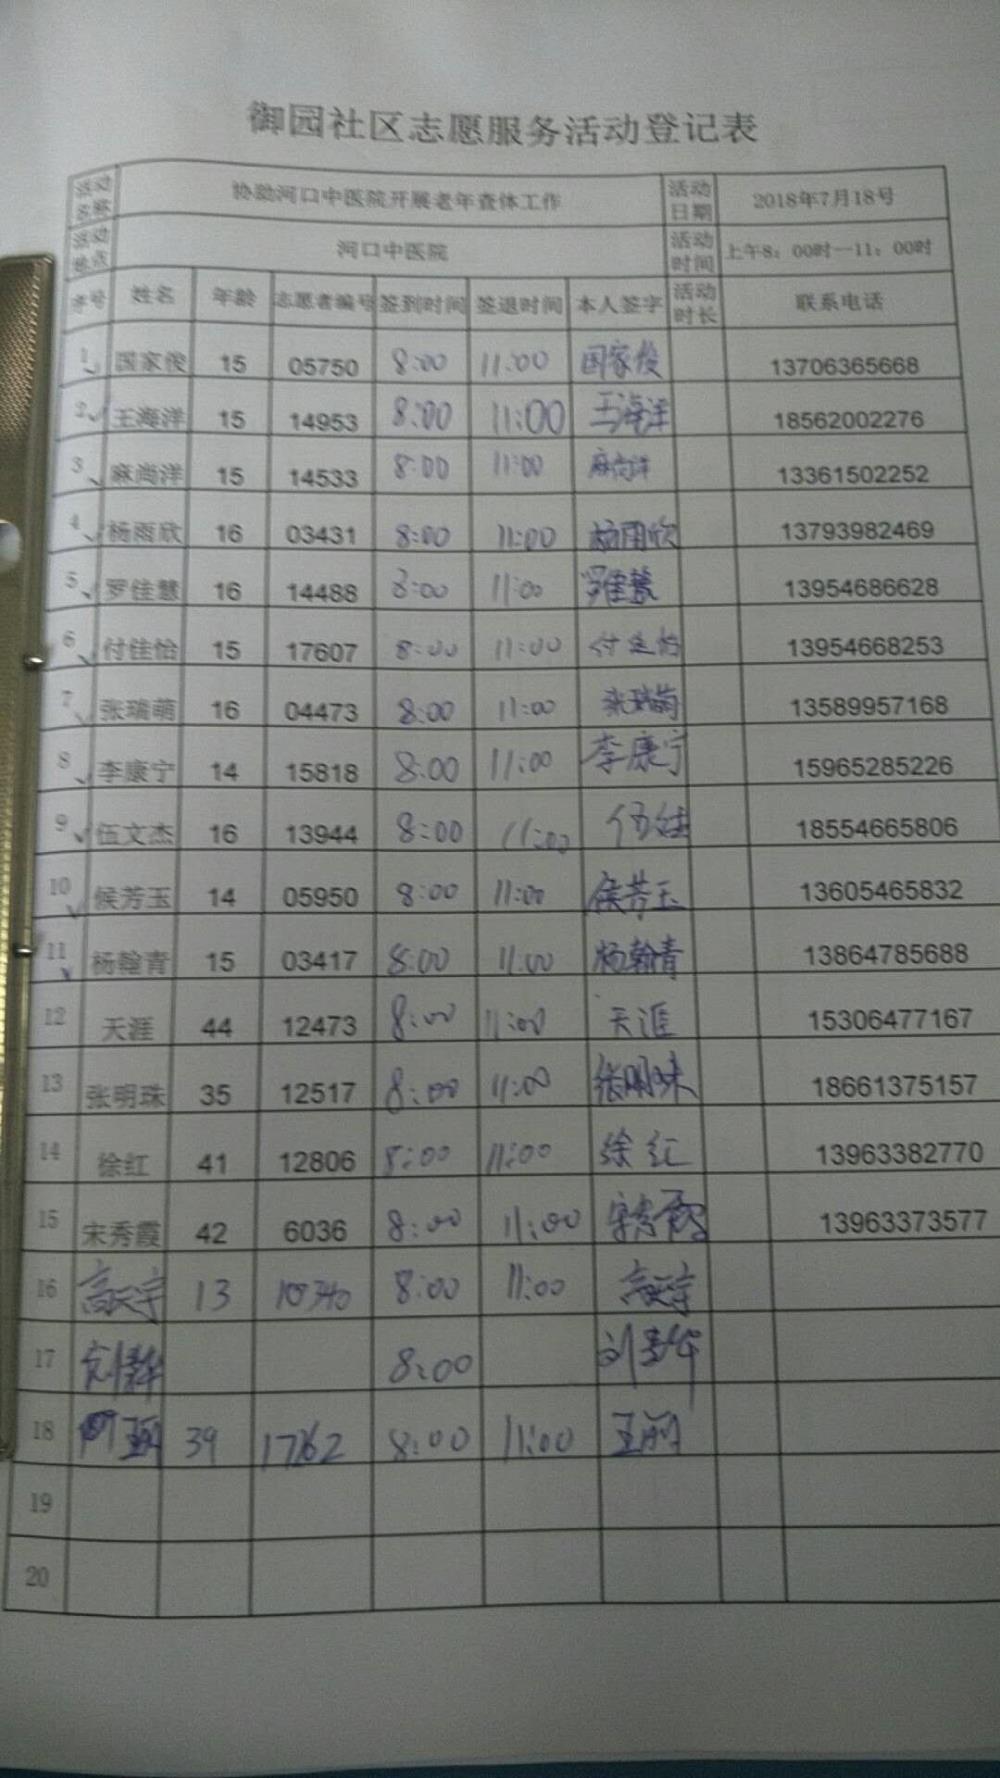 御园社区志愿服务活动登记表
活动名称 协助河口中医院开展老年查体工作 活动日期 2018年7月18号
活动地点 河口中医院 活动时间 上午8：00时—11：00时
序号 姓名 年龄 志愿者编号 签到时间 签退时间 本人签字 活动时长 联系电话
1 国家俊 15 05750 8:00 11:00 国家俊 13706365668
2 王海洋 15 14953 8:00 11:00 王海洋 18562002276
3 麻尚洋 15 14533 8:00 11:00 麻尚洋 13361502252
4 杨雨欣 16 03431 8:00 11:00 杨雨欣 13793982469
5 罗佳慧 16 14488 8:00 11:00 罗佳慧 13954686628
6 付佳怡 15 17607 8:00 11:00 付佳怡 13954668253
7 张瑞萌 16 04473 8:00 11:00 张瑞萌 13589957168
8 李康宁 14 15818 8:00 11:00 李康宁 15965285226
9 伍文杰 16 13944 8:00 11:00 伍文杰 18554665806
10 候芳玉 14 05950 8:00 11:00 侯芳玉 13605465832
11 杨翰青 15 03417 8:00 11:00 杨翰青 13864785688
12 天涯 44 12473 8:00 11:00 天涯 15306477167
13 张明珠 35 12517 8:00 11:00 张明珠 18661375157
14 徐红 41 12806 8:00 11:00 徐红 13963382770
15 宋秀霞 42 6036 8:00 11:00 宋秀霞 13963373577
16 高天宇 13 10340 8:00 11:00 高天宇
17 8:00
18 39 8:00 11:00
19
20